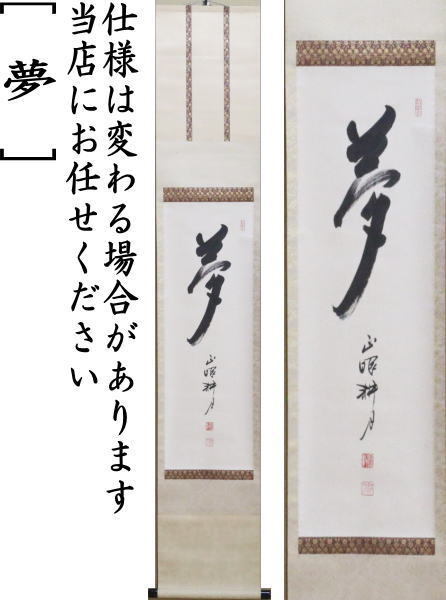 仕様は変わる場合があります
当店にお任せください
［夢］
夢
正眼耕月
夢
正眼耕月